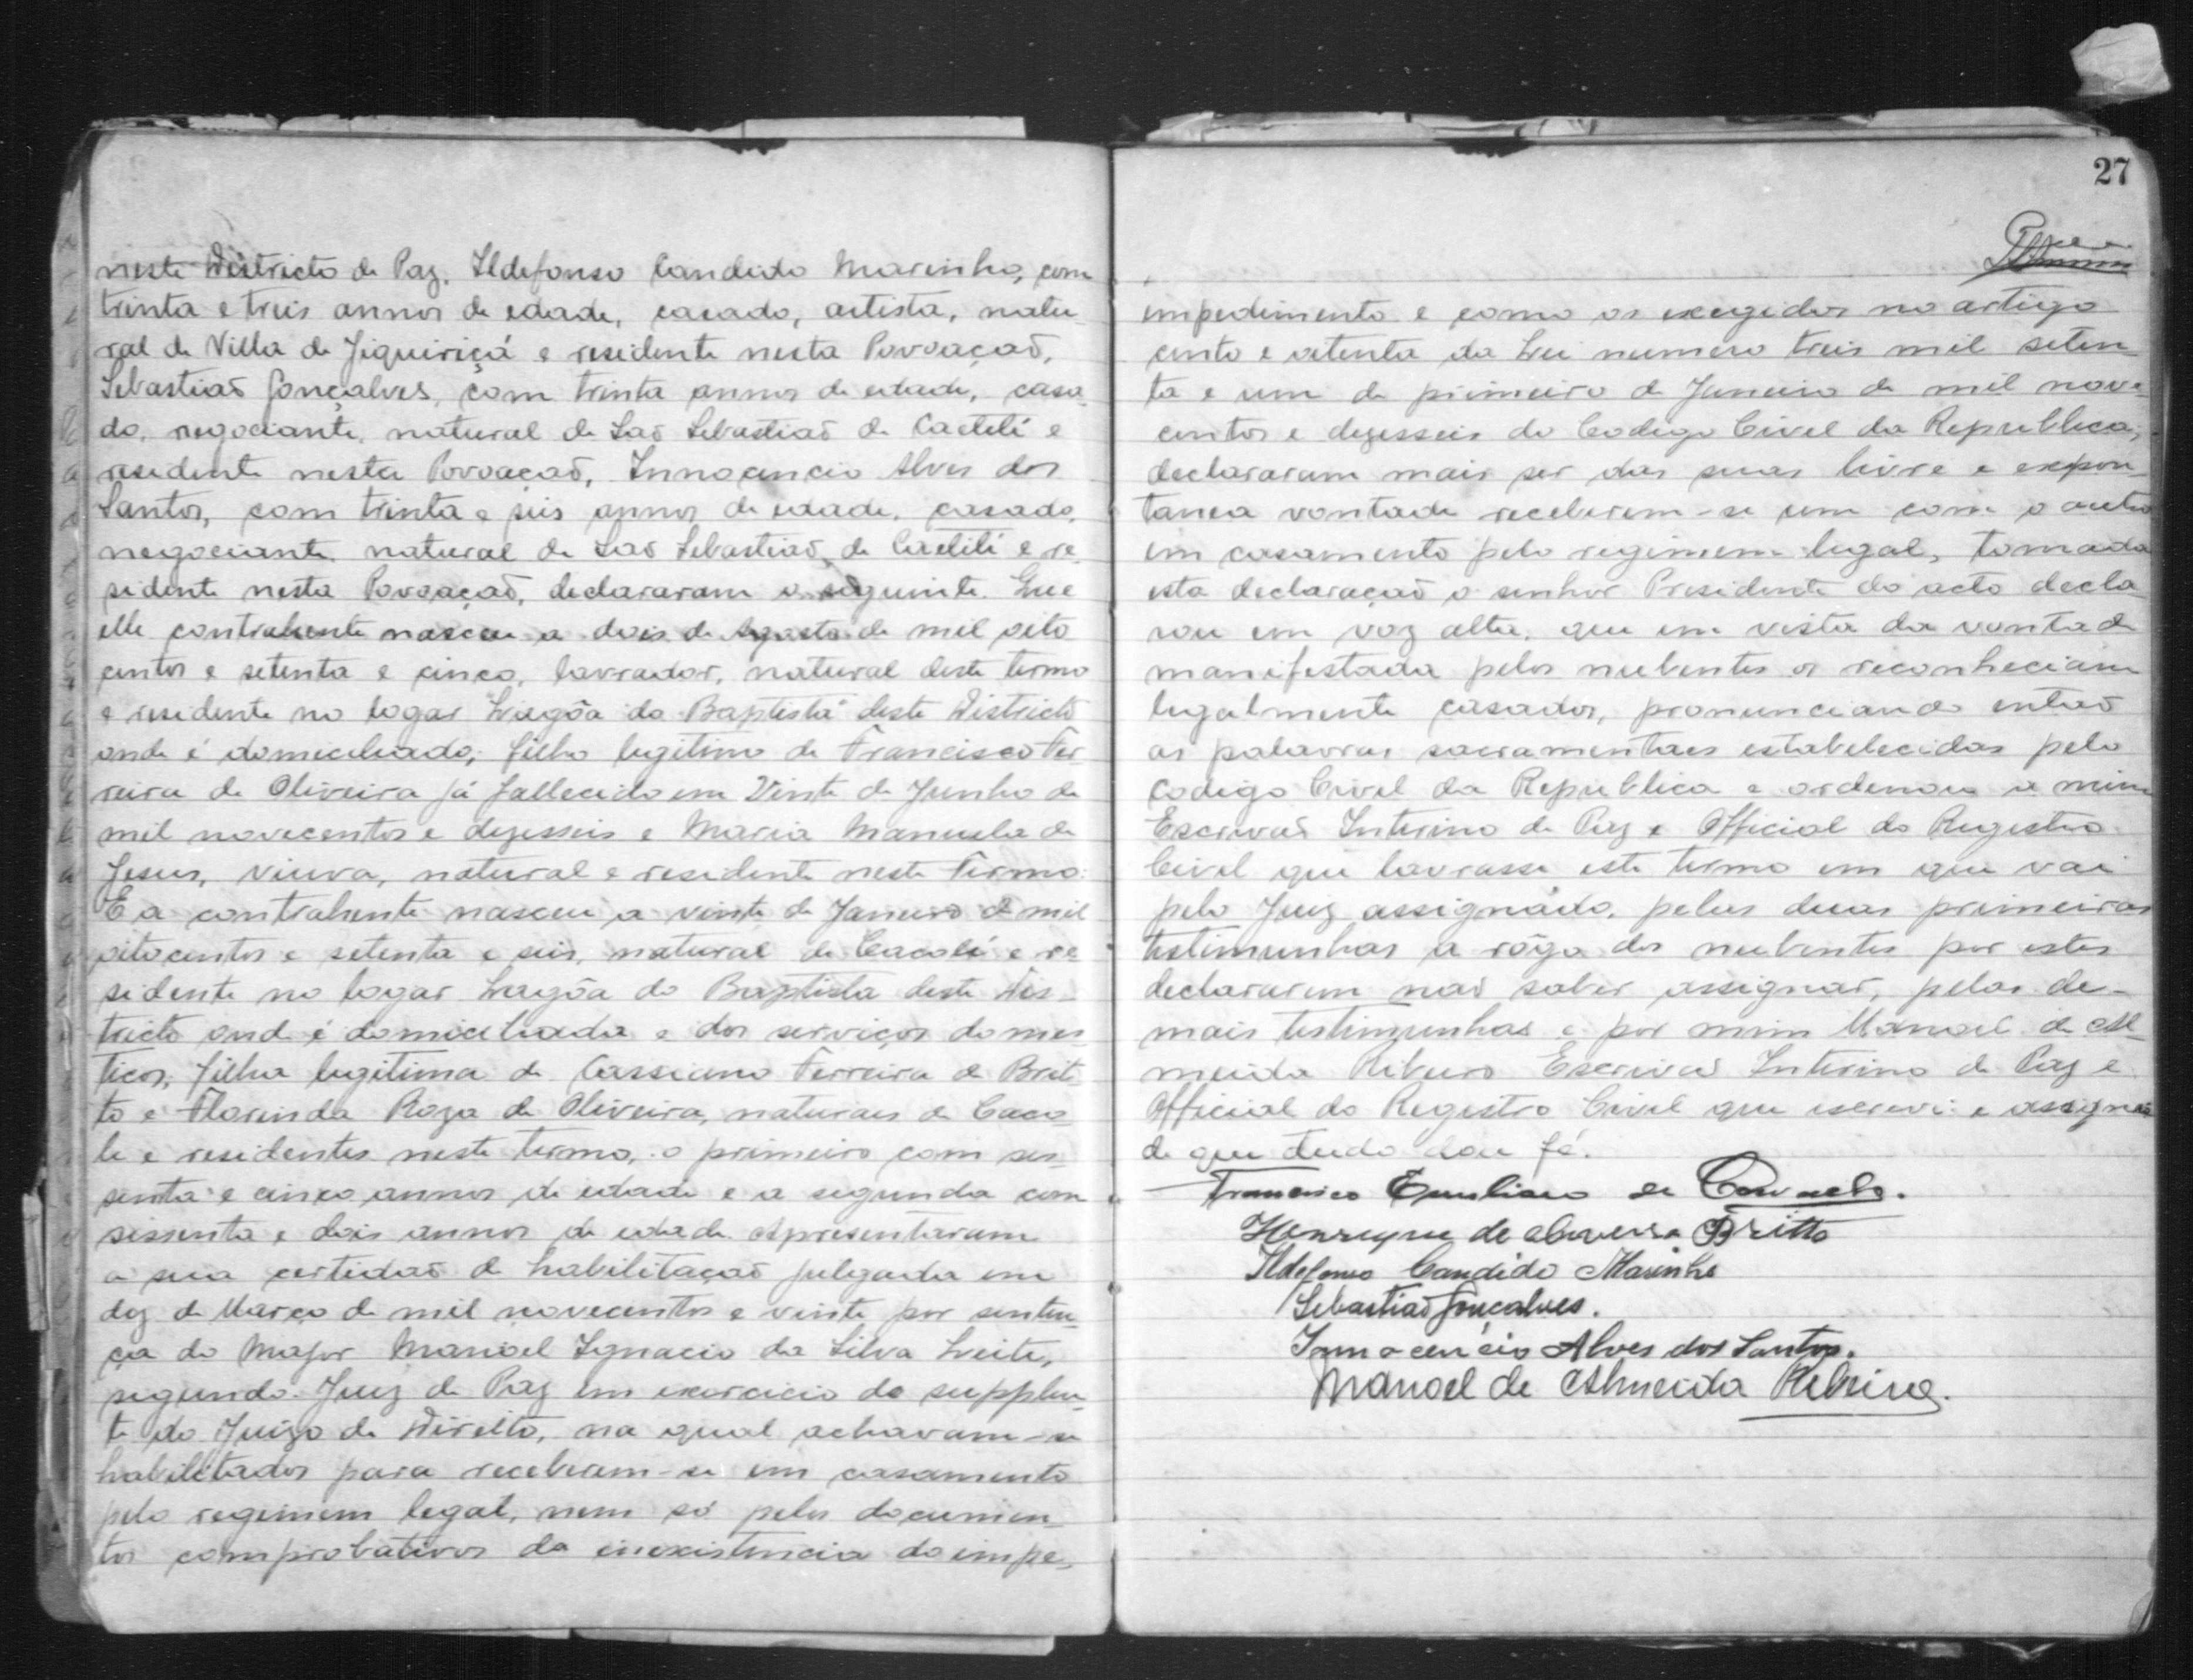 neste Districto de Paz. Ildefonso Candido Marinho, com
trinta e treis annos de edade, casado, artista, natu-
ral de Villa de Jiquiriçá e residente nesta Povoação,
Sebastião Gonçalves, com trinta annos de edade, casa-
do, negociante, natural de São Sebastião de Caeteté e
residente nesta Povoação, Innocencio Alves dos
Santos, com trinta e seis annos de edade, casado,
negociante natural de São Sebastião de Caeteté e re-
sidente nesta Povoação, declararam o seguinte. Que
elle contrahente nasceu a dois de Agosto de mil oito
centos e setenta e cinco, lavrador, natural deste termo
e residente no logar Lagôa do Baptista deste Districto
onde é domiciliado, filho legitimo de Francisco Fer-
reira de Oliveira já fallecido em Vinte de Junho de
mil novecentos e dezesseis e Maria Manuela de
Jesus, viuva, natural e residente neste Termo.
E a contrahente nasceu a vinte de Janeiro de mil
oitocentos e setenta e seis, natural de Cacolé e re-
sidente no logar Lagôa do Baptista deste Dis-
tricto onde é domiciliada e dos serviços domes-
ticos, filha legitima de Cassiano Ferreira de Brit-
to e Florinda Roza de Oliveira, naturaes de Caco-
le e residentes neste termo, o primeiro com ses-
senta e cinco annos de edade e a segunda com
sessenta e dois annos de edade. Apresentaram
a sua certidão de habilitação julgada em
dez de Março de mil novecentos e vinte por senten-
ça do Major Manoel Ignacio da Silva Leite,
segundo Juiz de Paz em exercicio do supplen-
te do Juizo de Direito, na qual achavam-se
habilitados para receberem-se em casamento
pelo regimem legal, nem só pelos documen-
tos comprobativos da inexistencia do impe-
27
impedimento e como os exegidos no artigo
cento e oitenta da Lei numero treis mil seten-
ta e um de primeiro de Janeiro de mil nove-
centos e dezesseis do Codigo Civel da Republica,
declararam mais ser das suas livre e expon-
tanea vontade receberem-se um com o outro
em casamento pelo regimem legal, tomada
esta declaração o senhor Presidente do acto decla
rou em voz alta, que em vista da vontade
manifestada pelos nubentes os reconheciam
legalmente casados, pronunciando então
as palavras sacramentaes estabelecidas pelo
Codigo Civel da Republica e ordenou a mim
Escrivão Interino de Paz e Official do Registro
Civel que lavrasse este termo em que vai
pelo Juiz assignado, pelas duas primeiras
testimunhas a rôgo dos nubentes por estes
declararem não saber assignar, pelas de-
mais testimunhas e por mim Manoel de Al-
meida Ribeiro Escrivão Interino de Paz e
Official do Registro Civel que escrevi e assignei
de que tudo dou fé.
Francisco Emiliano de Carvalho.
Henrique de Oliveira Britto
Ildefonso Candido Marinho
Sebastião Gonçalves.
Innocencio Alves dos Santos.
Manoel de Almeida Ribeiro.